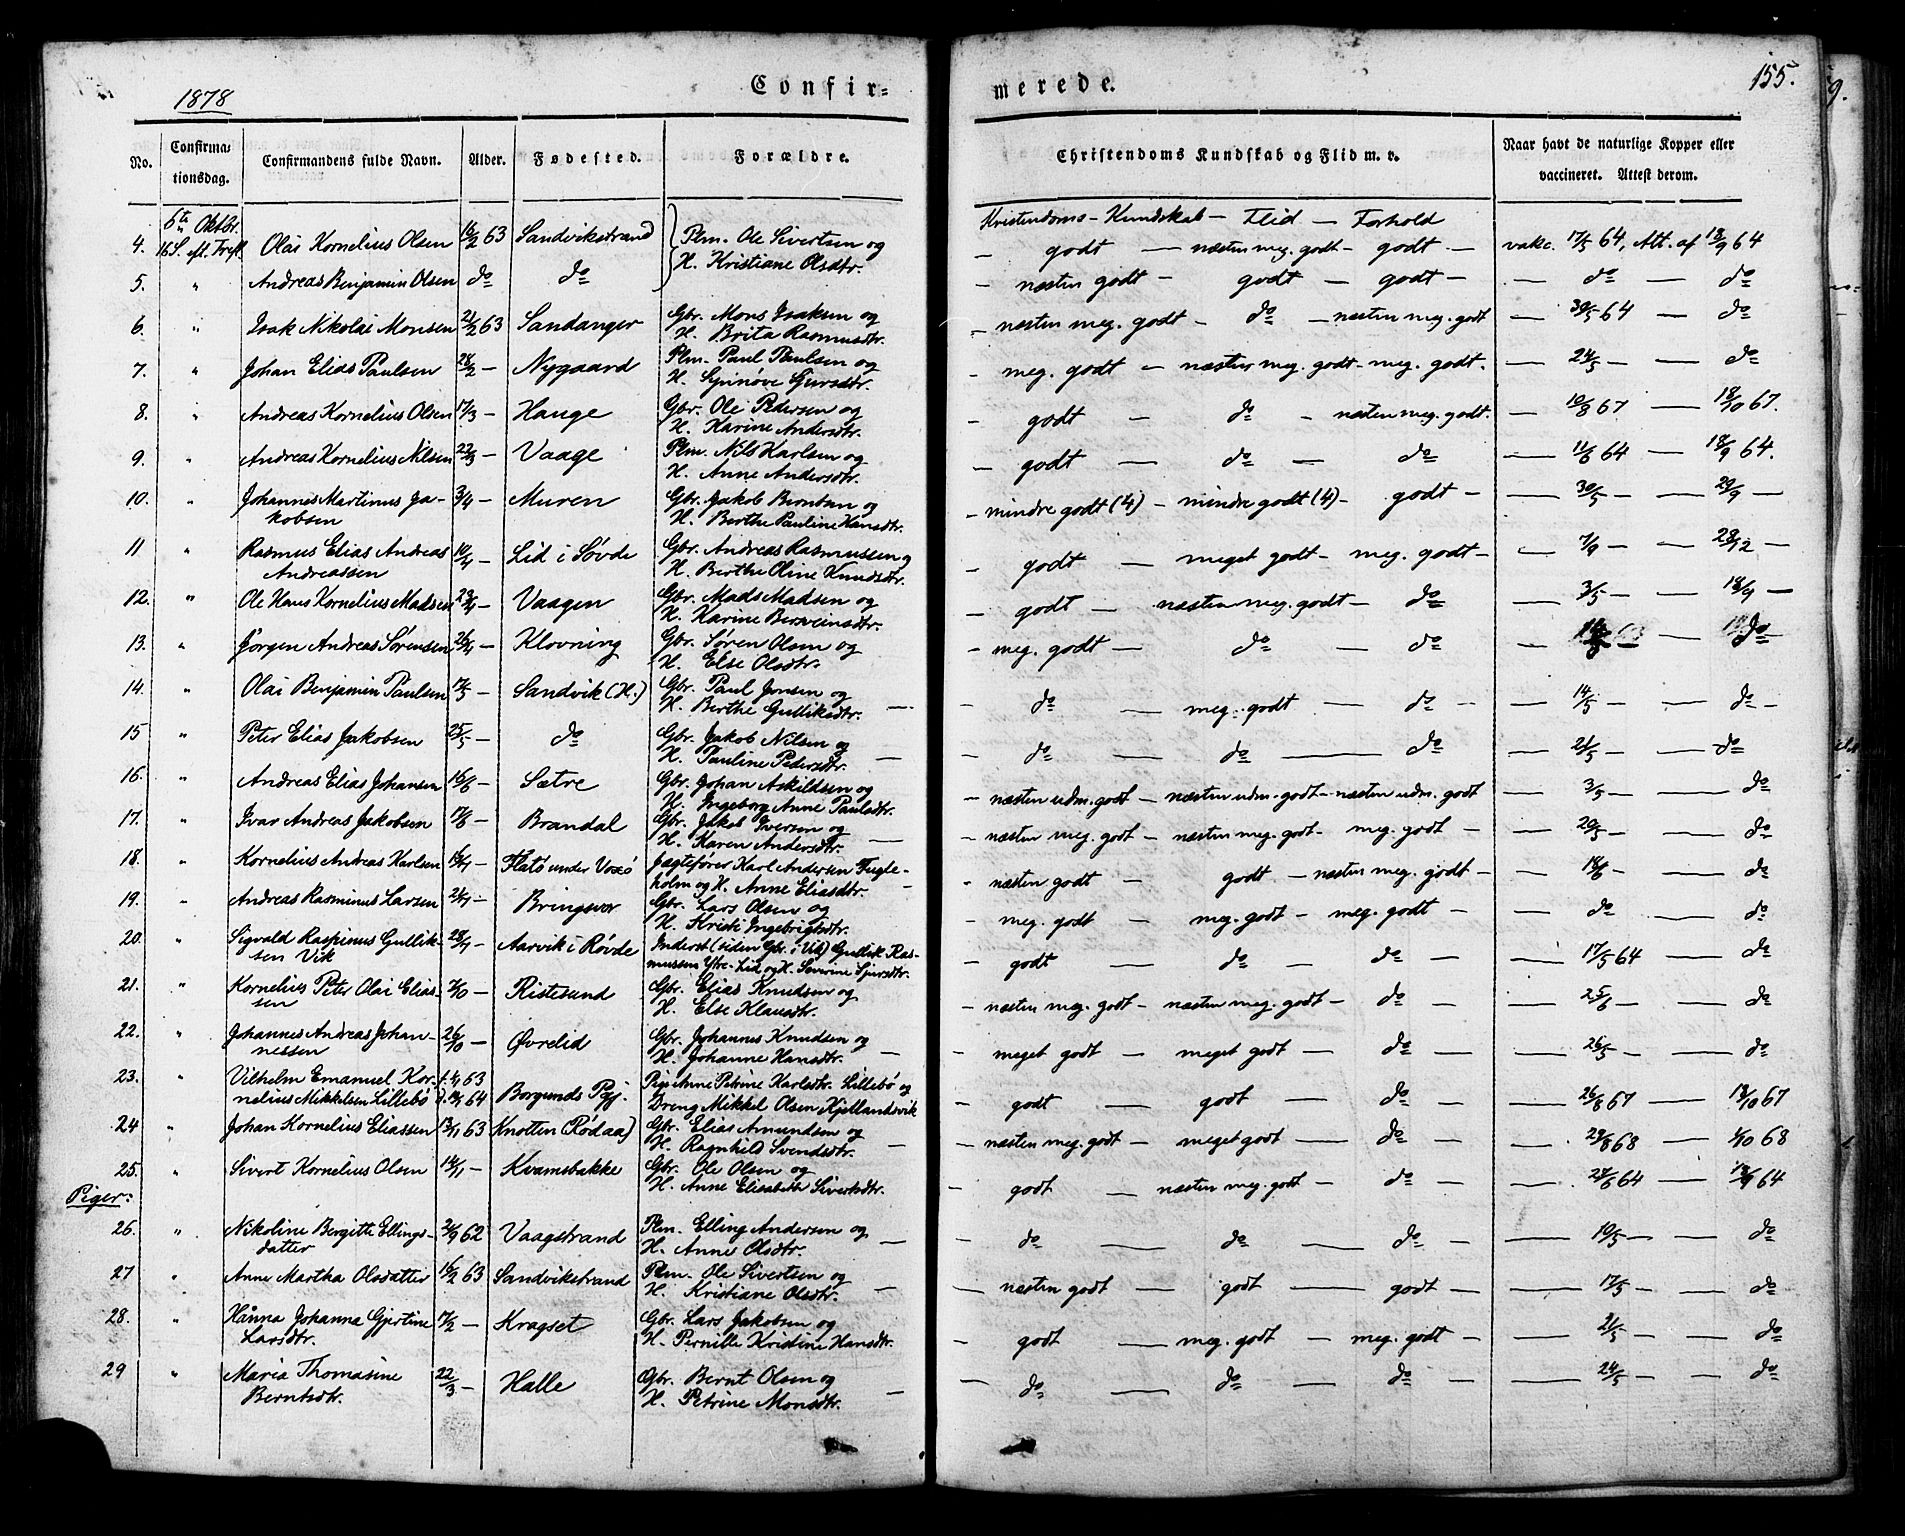 1878
Confir-
merede.
155.
9.
No.
Confirma-
tionsdag.
Confirmandens fulde Navn.
Alder.
Fødested.
Forældre.
Christendoms Kundskab og Flid m. v.
Naar havt de naturlige Kopper eller
vaccineret. Attest derom.
Kristendoms- Kundskab - Flid - Forhold
4. 6te Oktbr. 16 S. eft. Tref. Olai Kornelius Olsen 16/2 63 Sandvikstrand Plm. Ole Sivertsen og
H. Kristiane Olsdtr.
- godt - næsten meg. godt - godt - vakc. 17/5 64, Att. af 18/9 64
5. " Andreas Benjamin Olsen do do - næsten godt - godt - godt - do - do
6. " Isak Nikolai Monsen 21/2 63 Sandanger Gbr. Mons Isaksen og
H. Brita Rasmusdtr.
- næsten meg. godt - do - næsten meg. godt - 30/5 64 - do
7. " Johan Elias Paulsen 28/2 - Nygaard Plm. Paul Paulsen og
H. Synnøve Sjursdtr.
- meg. godt - næsten meg. godt - meg. godt. - 24/5 - do
8. " Andreas Kornelius Olsen 17/3 - Hauge Gbr. Ole Pedersen og
H. Karine Andersdtr.
- godt - do - næsten meg. godt. - 10/8 67 - 18/10 67.
9. " Andreas Kornelius Nilsen 22/3 - Vaage Plm. Nils Karlsen og
H. Anne Andersdtr.
- godt - do - do - 11/6 64 - 18/9 64.
10. " Johannes Martinus Ja-
kobsen 3/4 - Muren Gbr. Jakob Berntsen og
H. Berthe Pauline Hansdtr.
- mindre godt (4) - mindre godt (4) - godt - 30/5 - 29/9 -
11 " Rasmus Elias Andreas
Andreassen 10/4 - Lid i Søvde Gbr. Andreas Rasmussen og
H. Berthe Oline Knudsdtr.
- godt - meget godt - meg. godt - 7/9 - 28/12 -
12. " Ole Hans Kornelius Madsen 23/4 - Vaagen Gbr. Mads Madsen og
H. Karine Bersveinsdtr.
- godt - næsten meg. godt - do - 3/5 - 18/9 -
13. " Jørgen Andreas Sørensen 26/4 - Klovning Gbr. Søren Olsen og
H. Else Olsdtr.
- meg. godt - do - do - 63 - do
14. " Olai Benjamin Paulsen 17/5 - Sandvik (H.) Gbr. Paul Jonsen og
H. Berthe Gulliksdtr. -
- do - meg. godt - do - 14/5 - do -
15 " Peter Elias Jakobsen 25/5 - do Gbr. Jakob Nilsen og
H. Pauline Pedersdtr. -
- do - do - do - 21/5 - do
16. " Andreas Elias Johansen 16/6 - Sætre Gbr. Johan Askildsen og
H. Ingeborg Anne Paulsdtr.
- næsten udm. godt - næsten udm. godt - næsten udm. godt - 3/5 - do
17. " Ivar Andreas Jakobsen 17/6 - Brandal Gbr. Jakob Iversen og
H. Karen Andersdtr. -
- næsten meg. godt - næsten meg. godt - meg. godt - 20/5 - do
18. " Kornelius Andreas Karlsen 16/7 - Flatø under Voxø Jægtefører Karl Andersen Fugle-
holm og H. Anne Eliasdtr. -
- næsten godt - godt - næsten meg. godt - 18/6 - do
19. " Andreas Rasminus Larsen 21/7 - Bringsvor Gbr. Lars Olsen og
H. Kristi Ingebrigtsdtr.
- meg. godt - meg. godt - meg. godt - do - do
20. " Sigvald Raspinus Gullik-
sen Vik 28/7 - Aarvik i Røvde Inderst (siden Gbr. i Vik) Gullik Ras-
mussen Ytre-Lid og H. Severine Sjursdtr.
- godt - do - do - 17/5 64 - do
21. " Kornelius Peter Olai Elias-
sen 2/10 - Ristesund Gbr. Elias Knudsen og
H. Else Klausdtr.
- næsten meg. godt - næsten meg. godt - do - 25/6 - do
22. " Johannes Andreas Johan-
nessen 26/10 - Øvrelid Gbr. Johannes Knudsen og
H. Johanne Hansdtr. -
- meget godt - meget godt - do - 26/5 - do
23. " Vilhelm Emanuel Kor-
nelius Mikkelsen Lillebø 63 64 Borgunds Pgj. Pige Anne Petrine Karlsdtr. Lillebø og
Dreng Mikkel Olsen Kjellandsvik
- godt - godt - do - 26/8 67 - 18/10 67
24 " Johan Kornelius Eliassen 13/11 63 Knotten (Rødaa) Gbr. Elias Amundsen og
H. Ragnhild Svendsdtr. -
- næsten meg. godt - meget godt - do - 29/8 68 - 1/10 68
25. " Sivert Kornelius Olsen 14/11 - Kvamsbakke Gbr. Ole Olsen og
H. Anne Elisabeth Sivertsdtr.
- godt - næsten meg. godt - do - 27/6 64 - 18/9 64
Piger:
26. " Nikoline Bergitte Ellings-
datter 2/9 62 Vaagstrand Plm. Elling Andersen og
H. Anne Olsdtr. -
- do - do - do - 10/5 - do
27 " Anne Martha Olsdatter 16/2 63 Sandvikstrand Plm. Ole Sivertsen og
H. Kristiane Olsdtr. -
- næsten godt - godt - godt - 17/5 - do
28. " Hanna Johanna Gjertine
Larsdtr. 17/2 - Kragset Gbr. Lars Jakobsen og
H. Pernille Kristine Hansdtr.
- godt - meg. godt - meg. godt - 21/5 - do
29 " Maria Thomasine
Berntsdtr. 22/3 - Halle Gbr. Bernt Olsen og
H. Petrine Monsdtr. -
- do - do - do - 24/5 - do